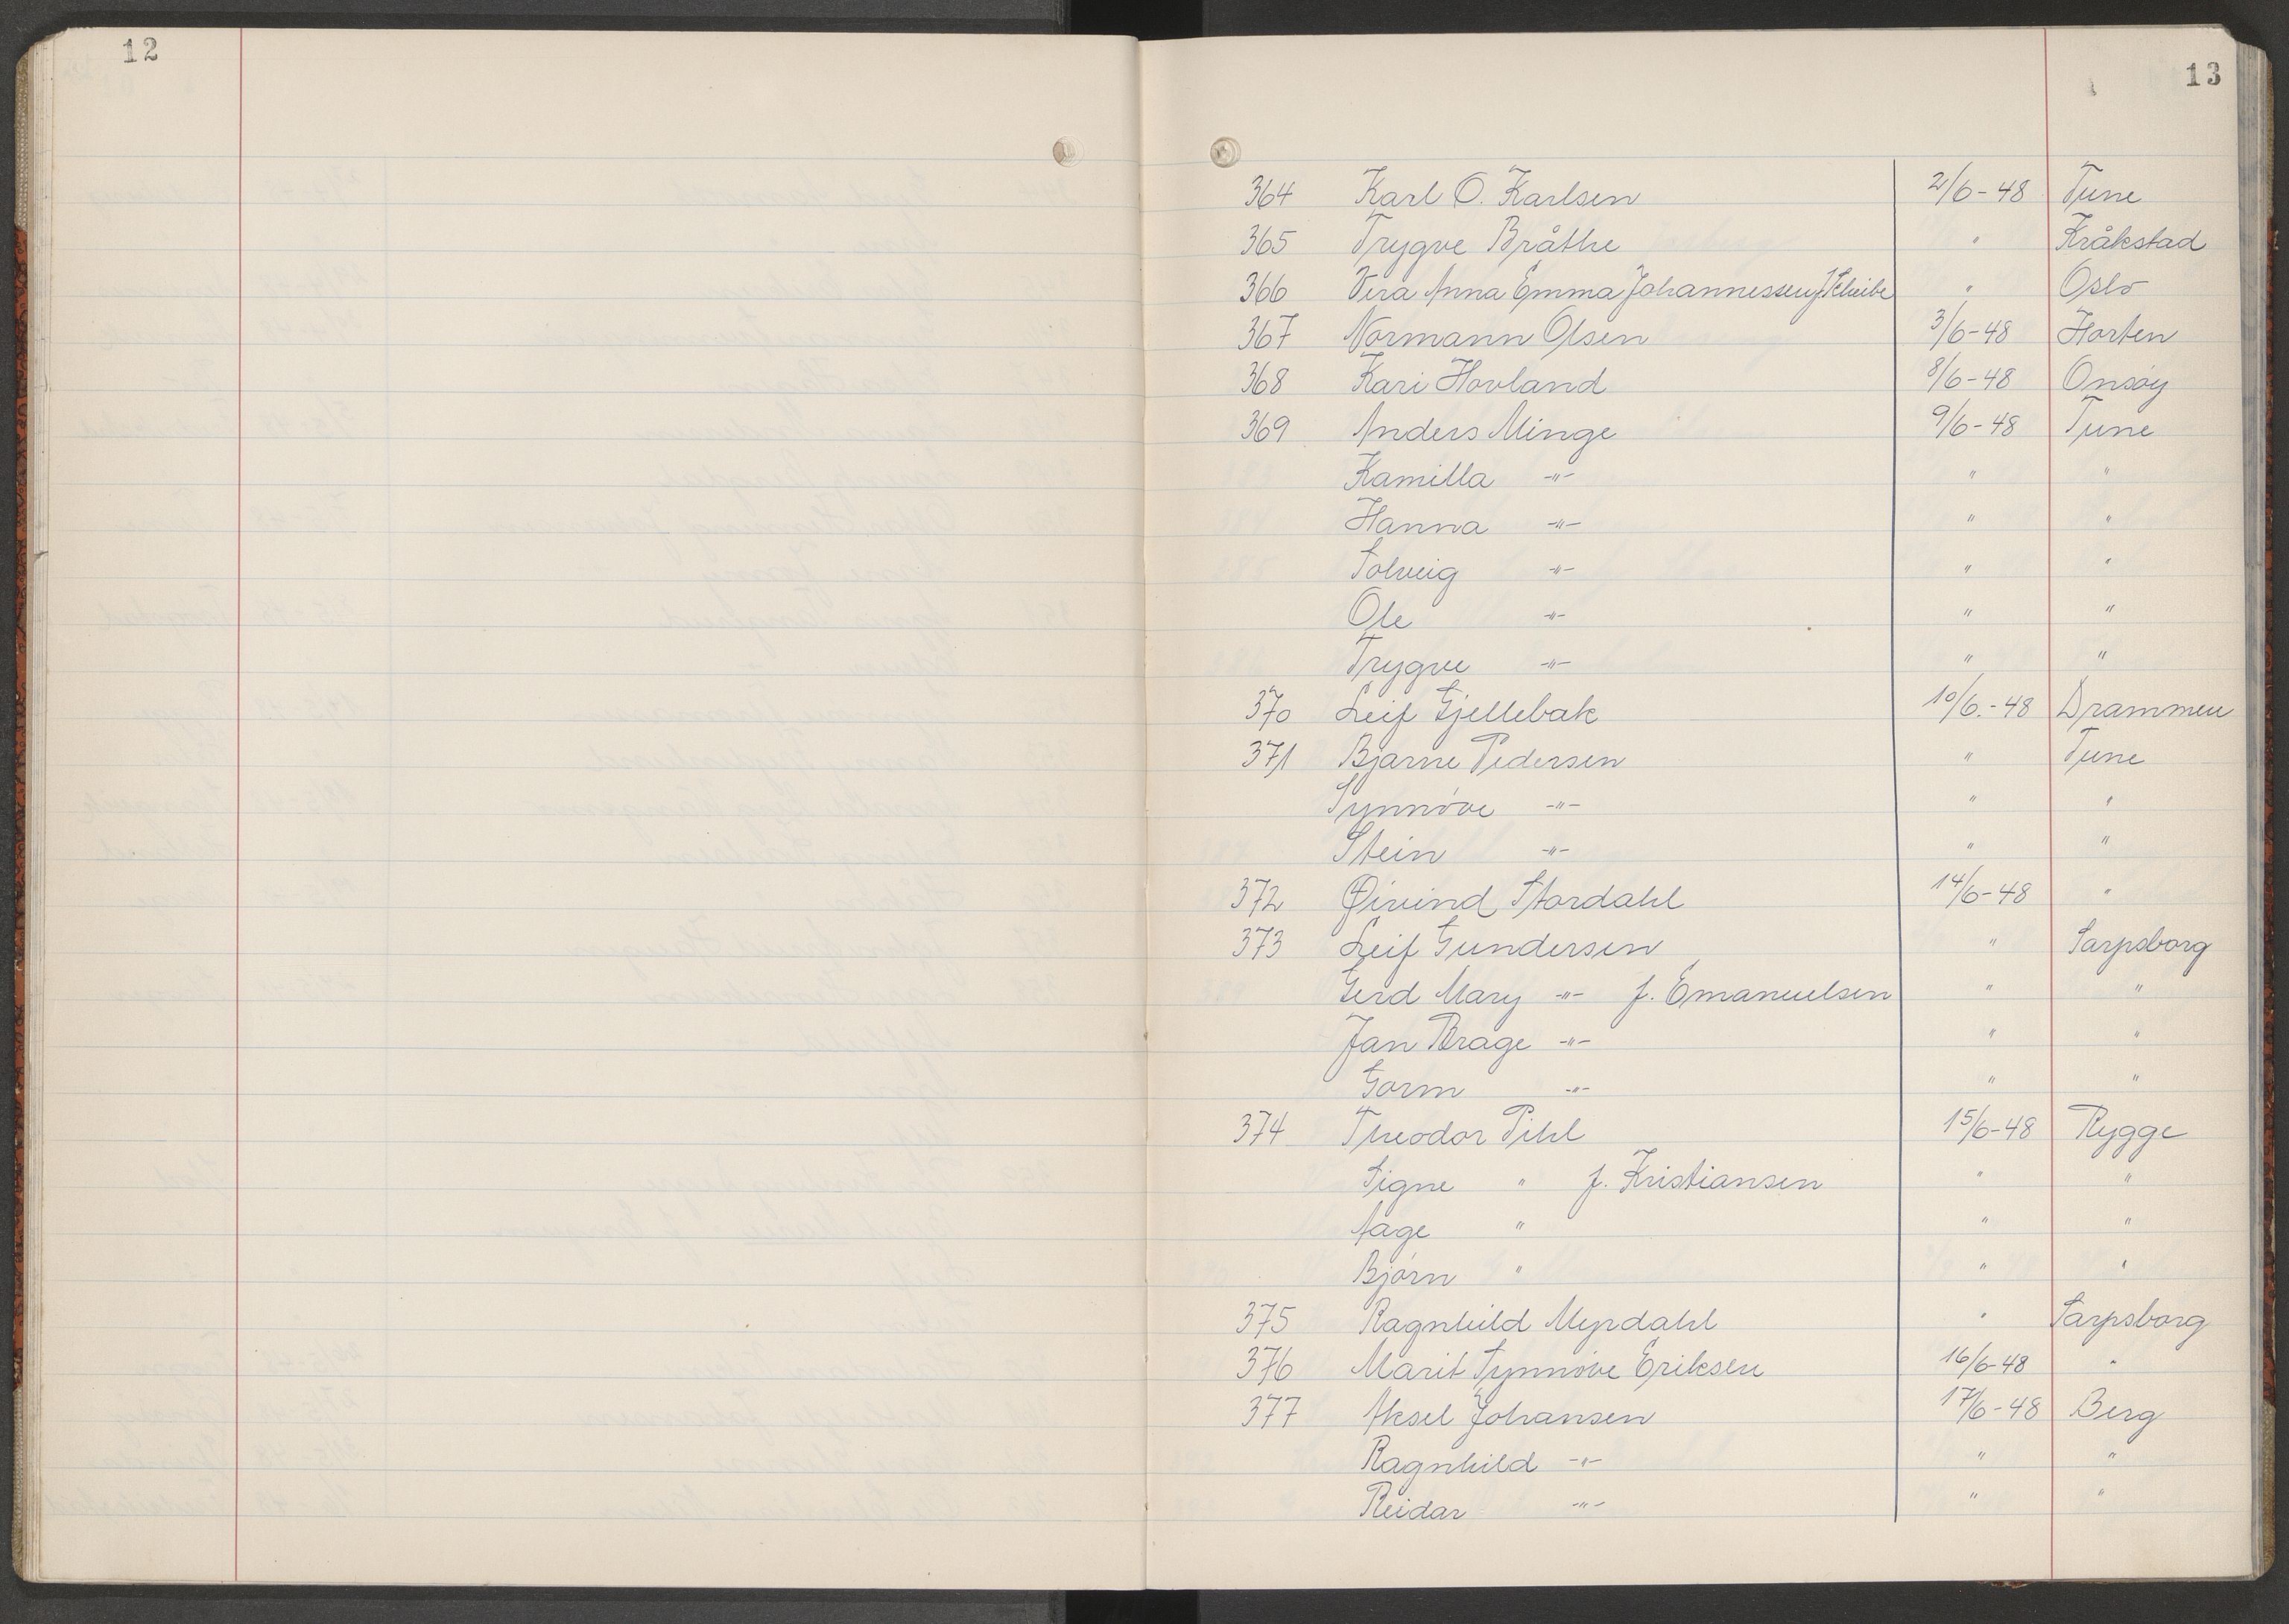 12
13
364 Karl O. Karlsen 2/6-48 Tune
365 Trygve Bråthe " Kråkstad
366 Vera Anna Emma Johannessen f. Scheibe " Oslo
367 Normann Olsen 3/6-48 Horten
368 Kari Hovland 8/6-48 Onsøy
369 Anders Minge 9/6-48 Tune
Kamilla -"- " "
Hanna -"- " "
Solveig -"- " "
Ole -"- " "
Trygve -"- " "
370 Leif Gjellebak 10/6.-48 Drammen
371 Bjarne Pedersen " Tune
Synnöve -"- " "
Stein -"- " "
372 Øivind Stordahl 14/6-48 "
373 Leif Gundersen " Sarpsborg
Gerd Mary -"- f. Emanuelsen " "
Jan Brage -"- " "
Gorm -"- " "
374 Theodor Pihl 15/6-48 Rygge
Signe " f. Kristiansen " "
Aage " " "
Bjørn " " "
375 Ragnhild Myrdahl " Sarpsborg
376 Marit Synnøve Eriksen 16/6-48 "
377 Aksel Johansen 17/6-48 Berg
Ragnhild -"- " "
Reidar -"- " "